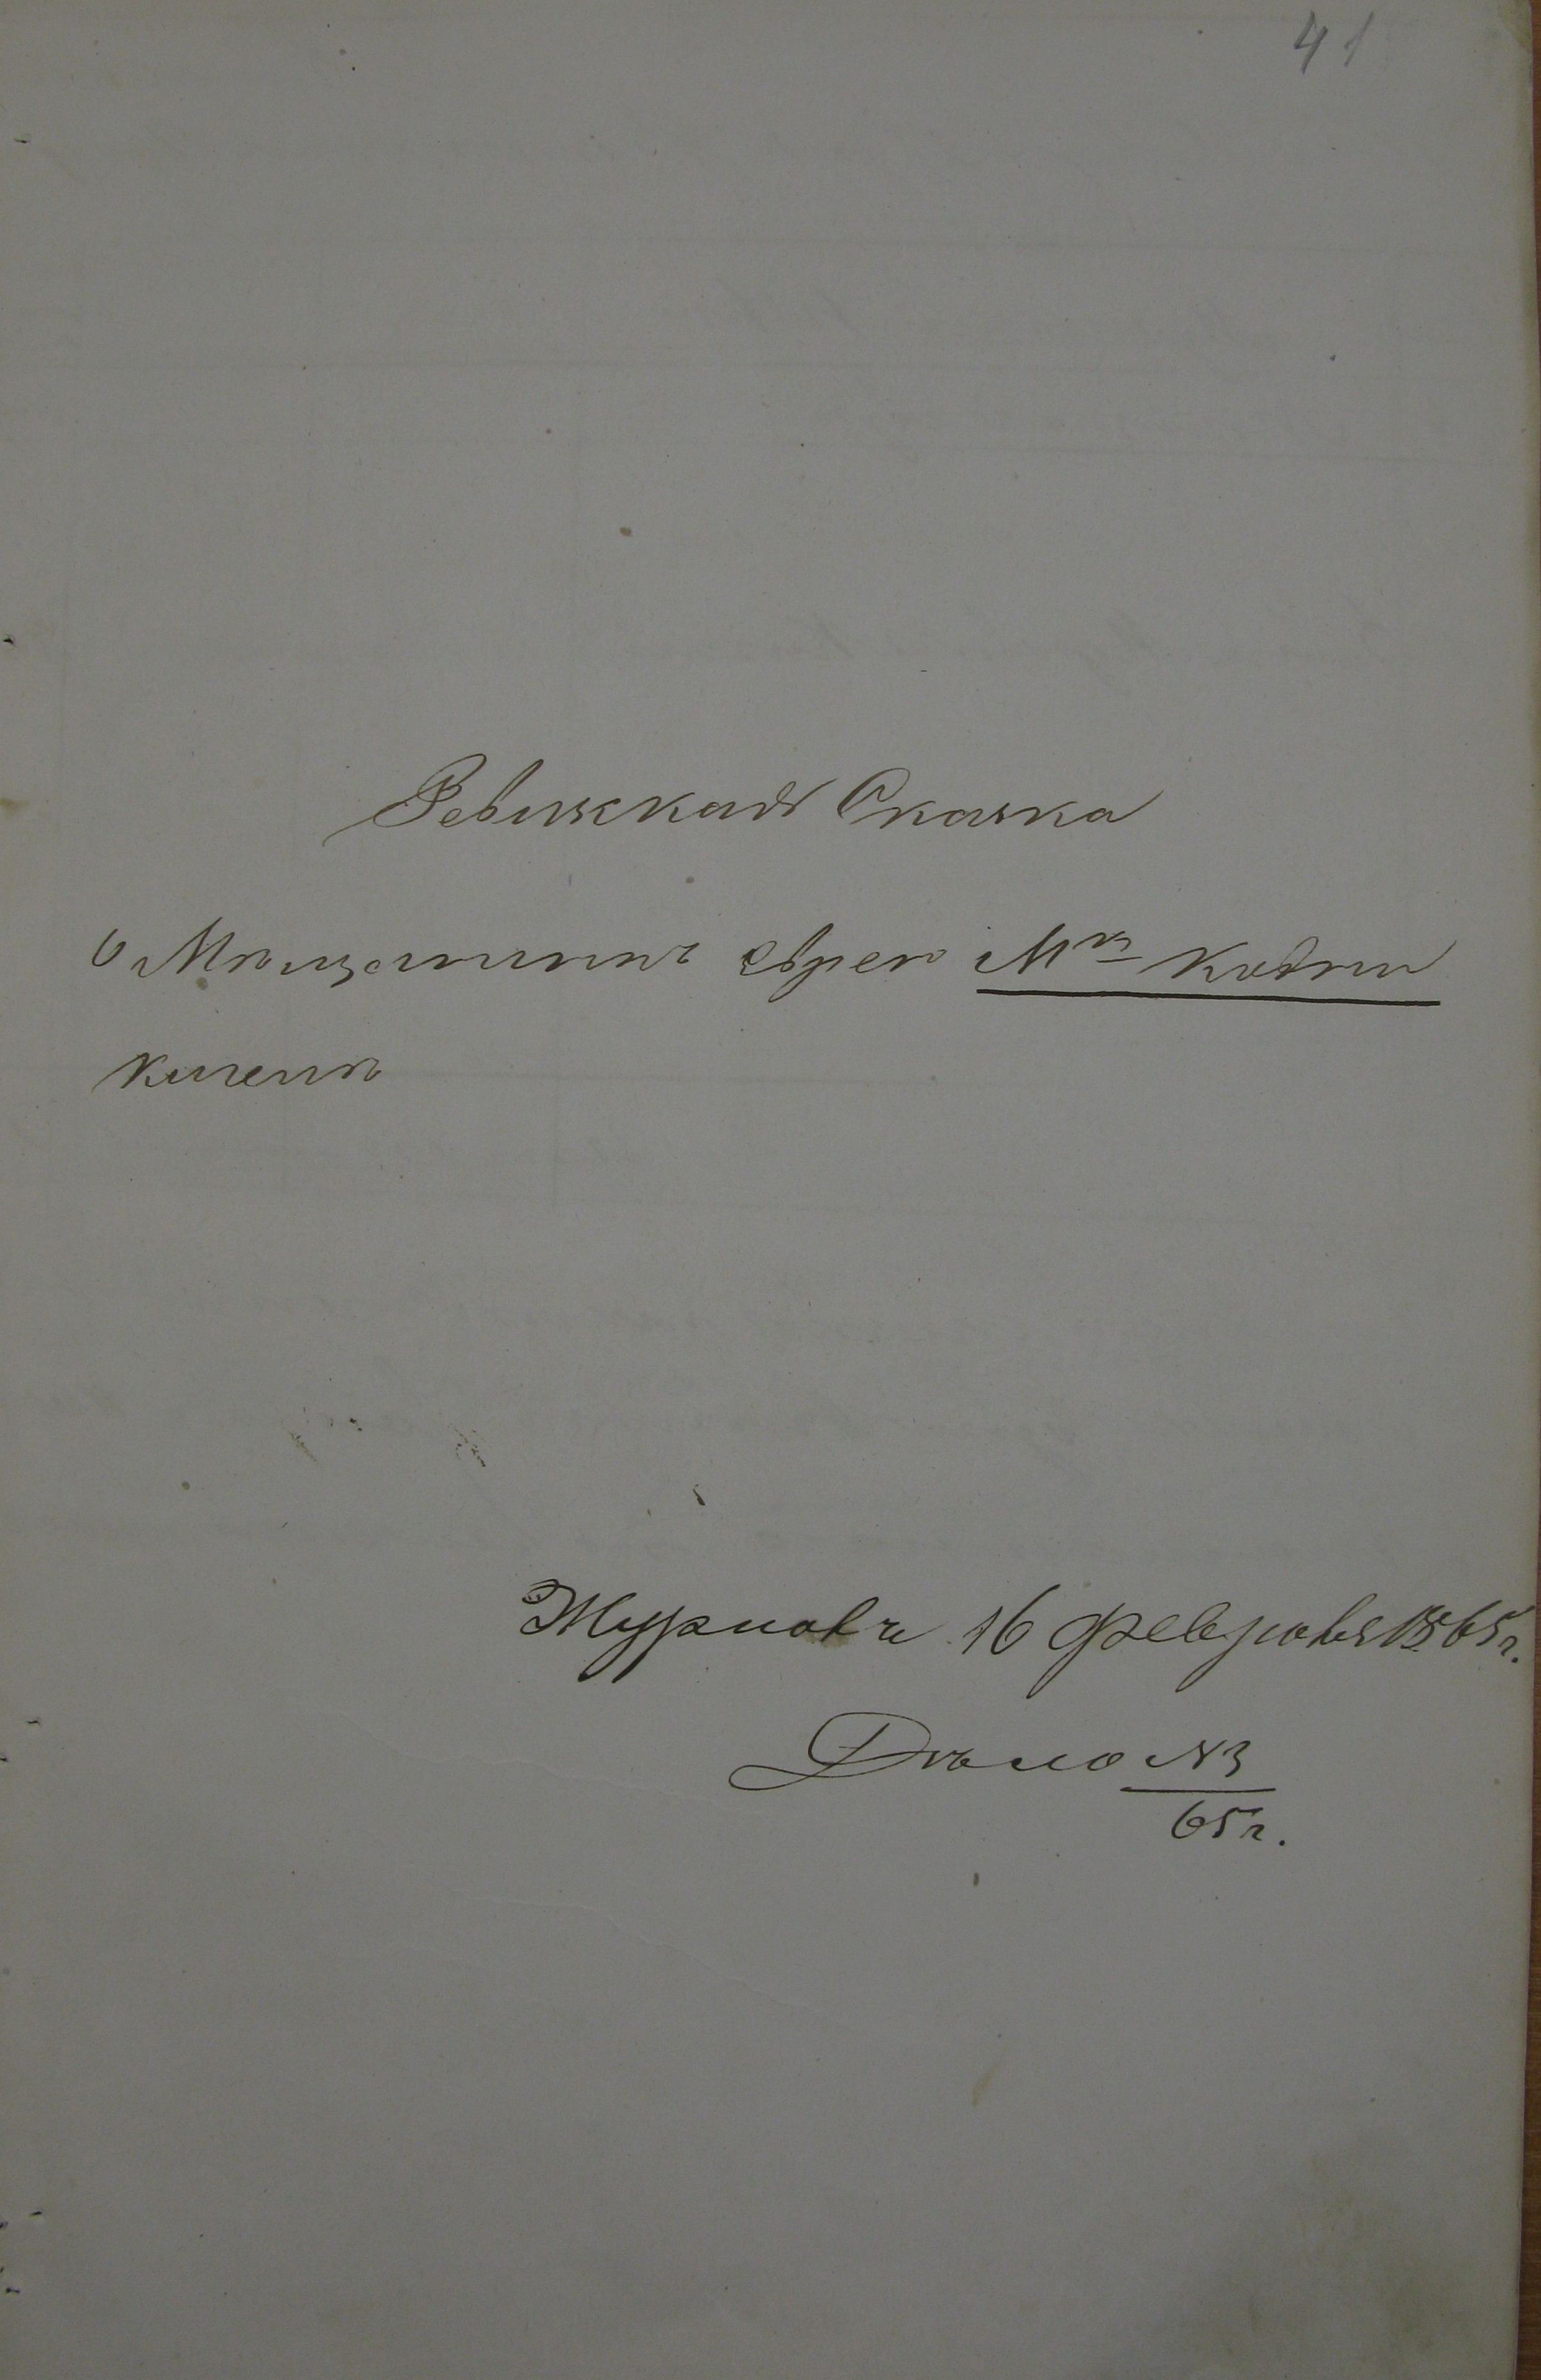 41
Ревизская Сказка
о Мѣщанинѣ евреѣ Мка Кодни
Журналъ 16 февраля 1865 г.
Дѣло № 3
65 г.